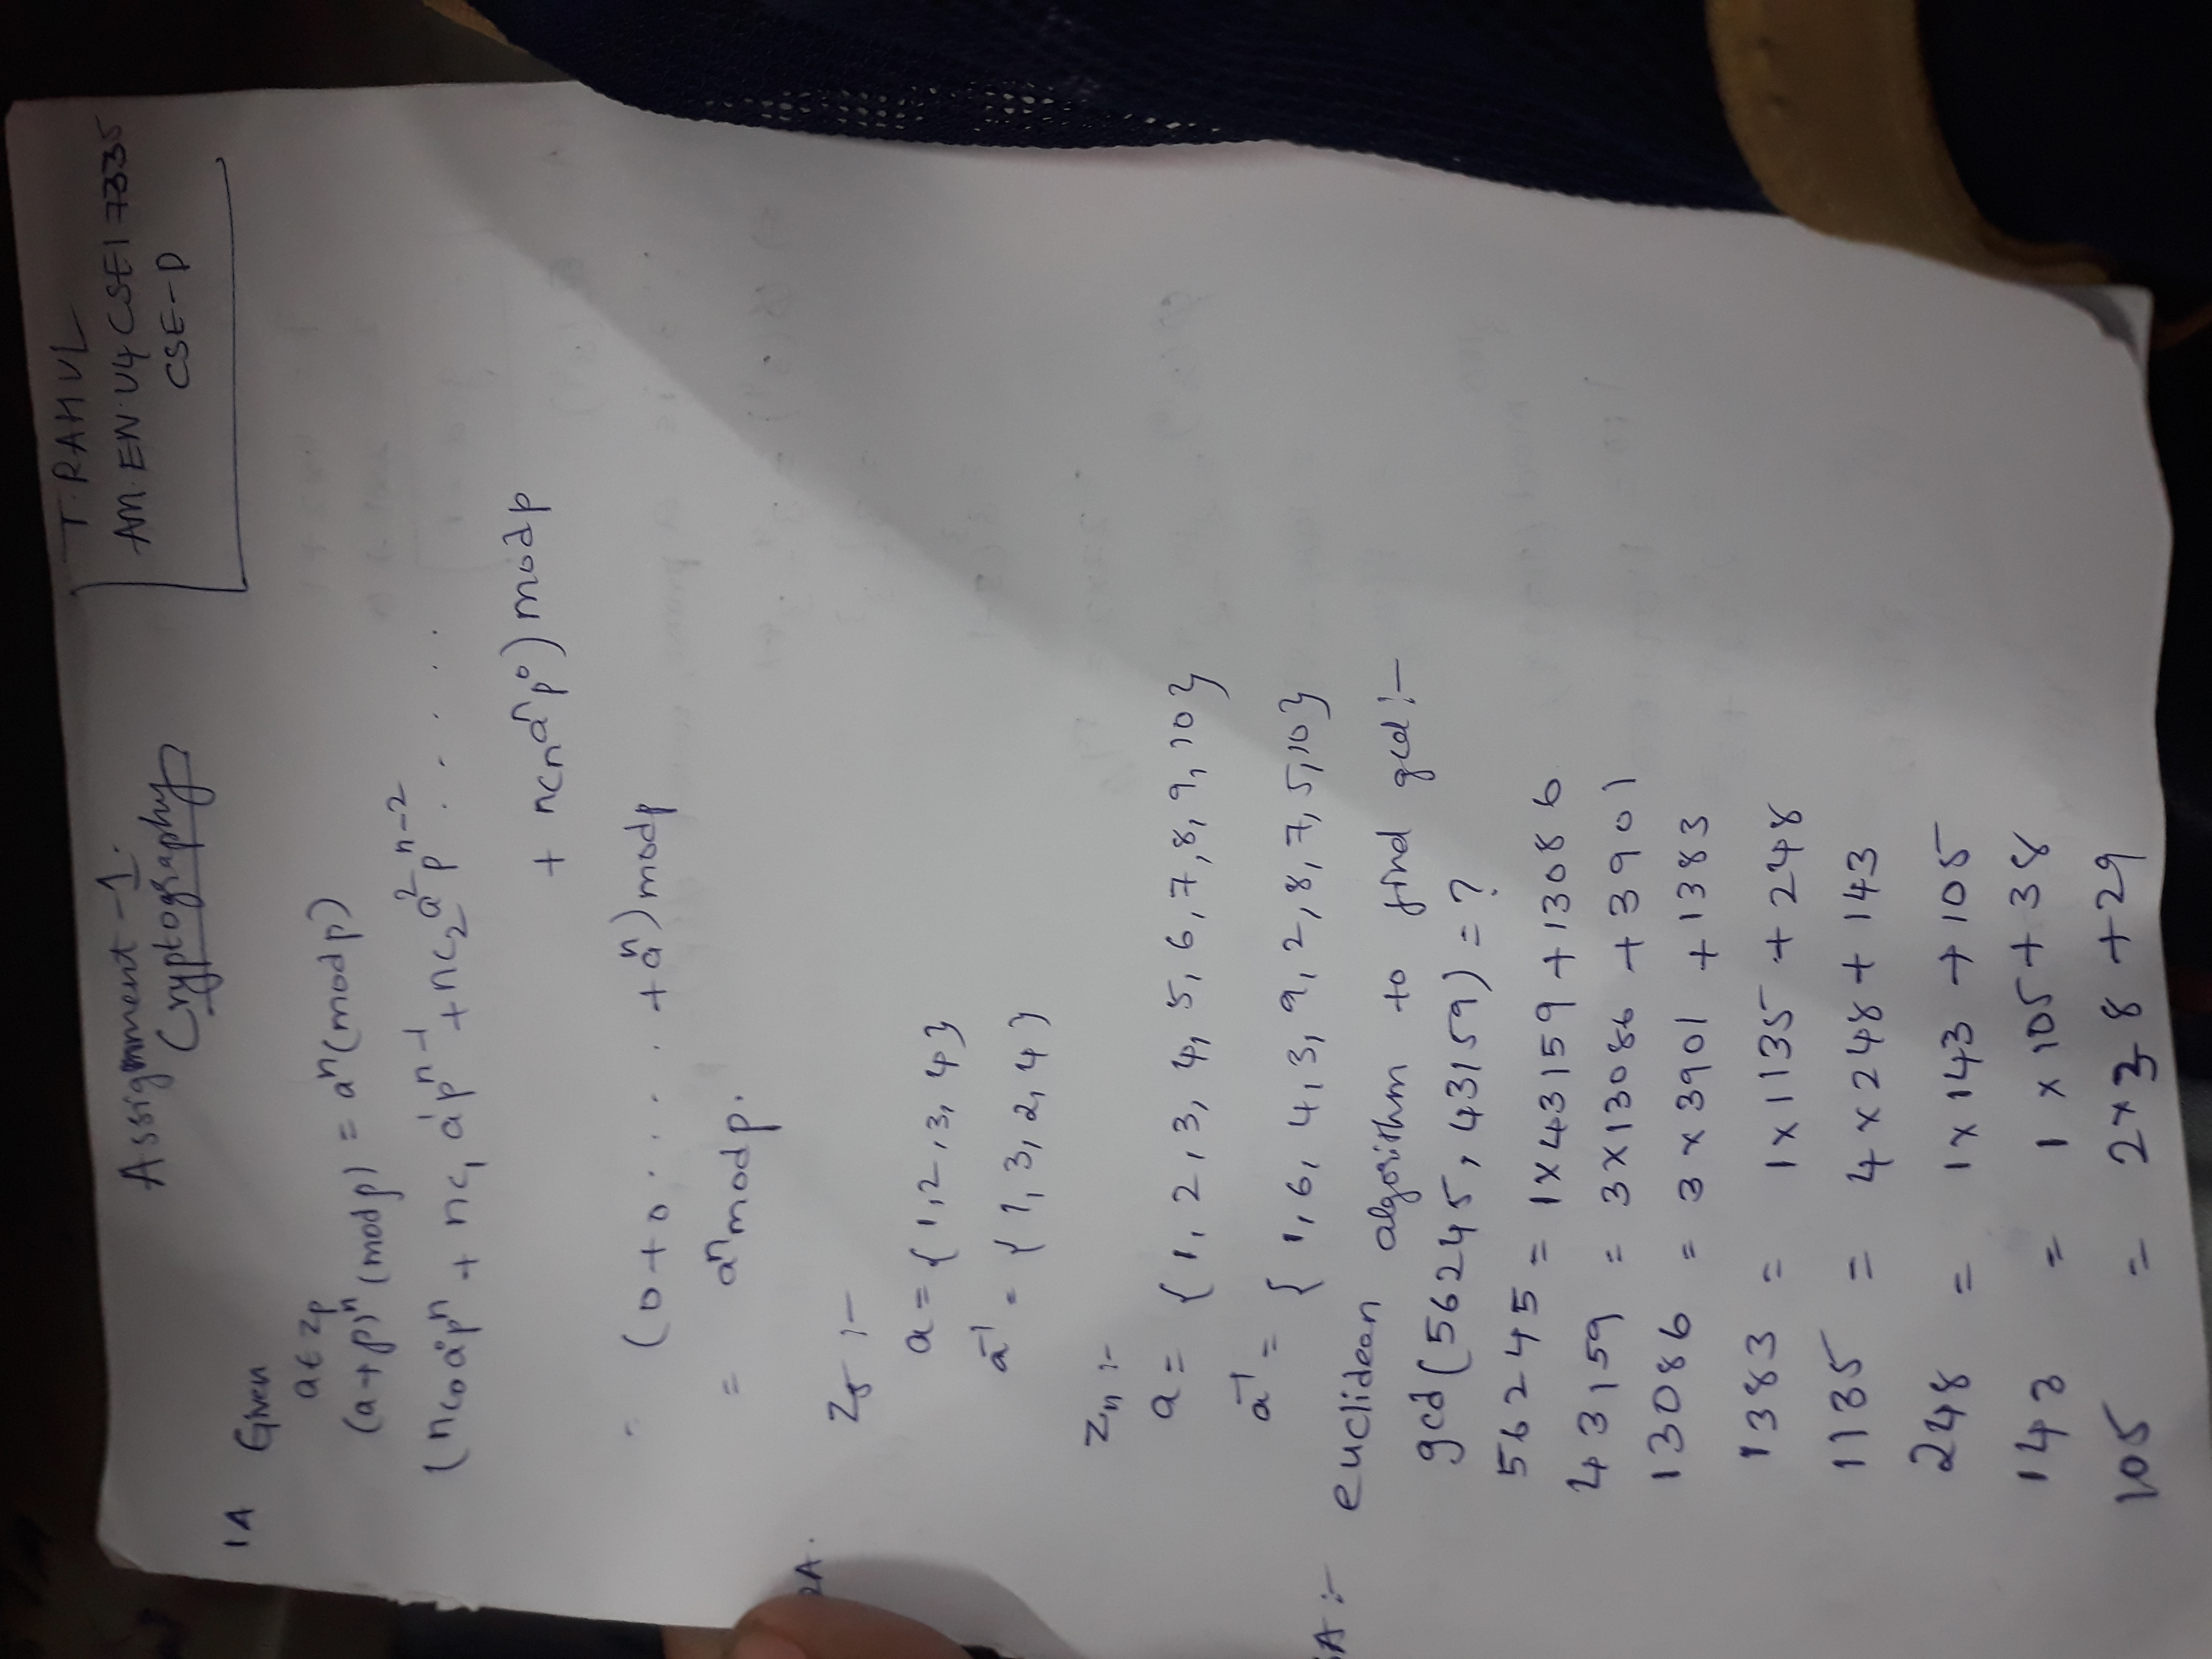 Assignment-1.
Cryptography
T. RAHUL
AM.EN.U4CSE17335
CSE-D
1A Given
a ∈ Zp
(a+p)ⁿ (mod p) = aⁿ (mod p)
(nc₀a⁰pⁿ + nc₁a¹pⁿ⁻¹ + nc₂a²pⁿ⁻² ......
+ ncₙaⁿp⁰) mod p
= (0+0 ..... + aⁿ) mod p
= aⁿ mod p.
2A.
Z₅ :-
a = {1,2,3,4}
a⁻¹ = {1,3,2,4}
Z₁₁ :-
a = {1,2,3,4,5,6,7,8,9,10}
a⁻¹ = {1,6,4,3,9,2,8,7,5,10}
A :- euclidean algorithm to find gcd :-
gcd(56245, 43159) = ?
56245 = 1×43159 + 13086
43159 = 3×13086 + 3901
13086 = 3×3901 + 1383
1383 = 1×1135 + 248
1135 = 4×248 + 143
248 = 1×143 + 105
143 = 1×105 + 38
105 = 2×38 + 29